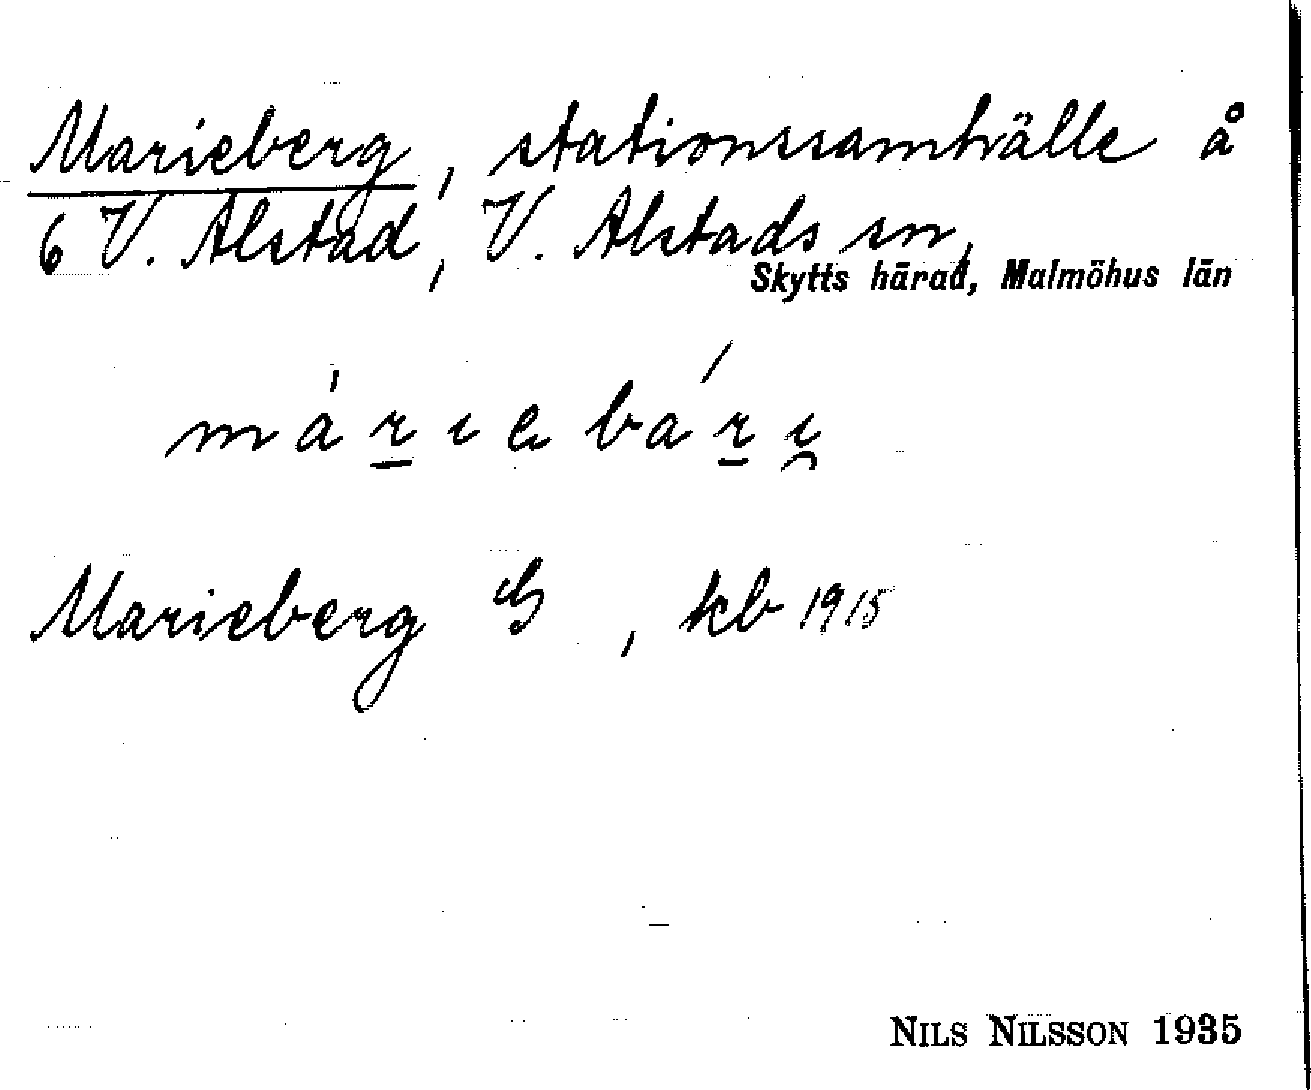 Marieberg, stationssamhälle å
6 V. Alstad, V. Alstads sn,
Skytts härad, Malmöhus län
márıebárı
Marieberg G, kb 1915
NILS NILSSON 1935